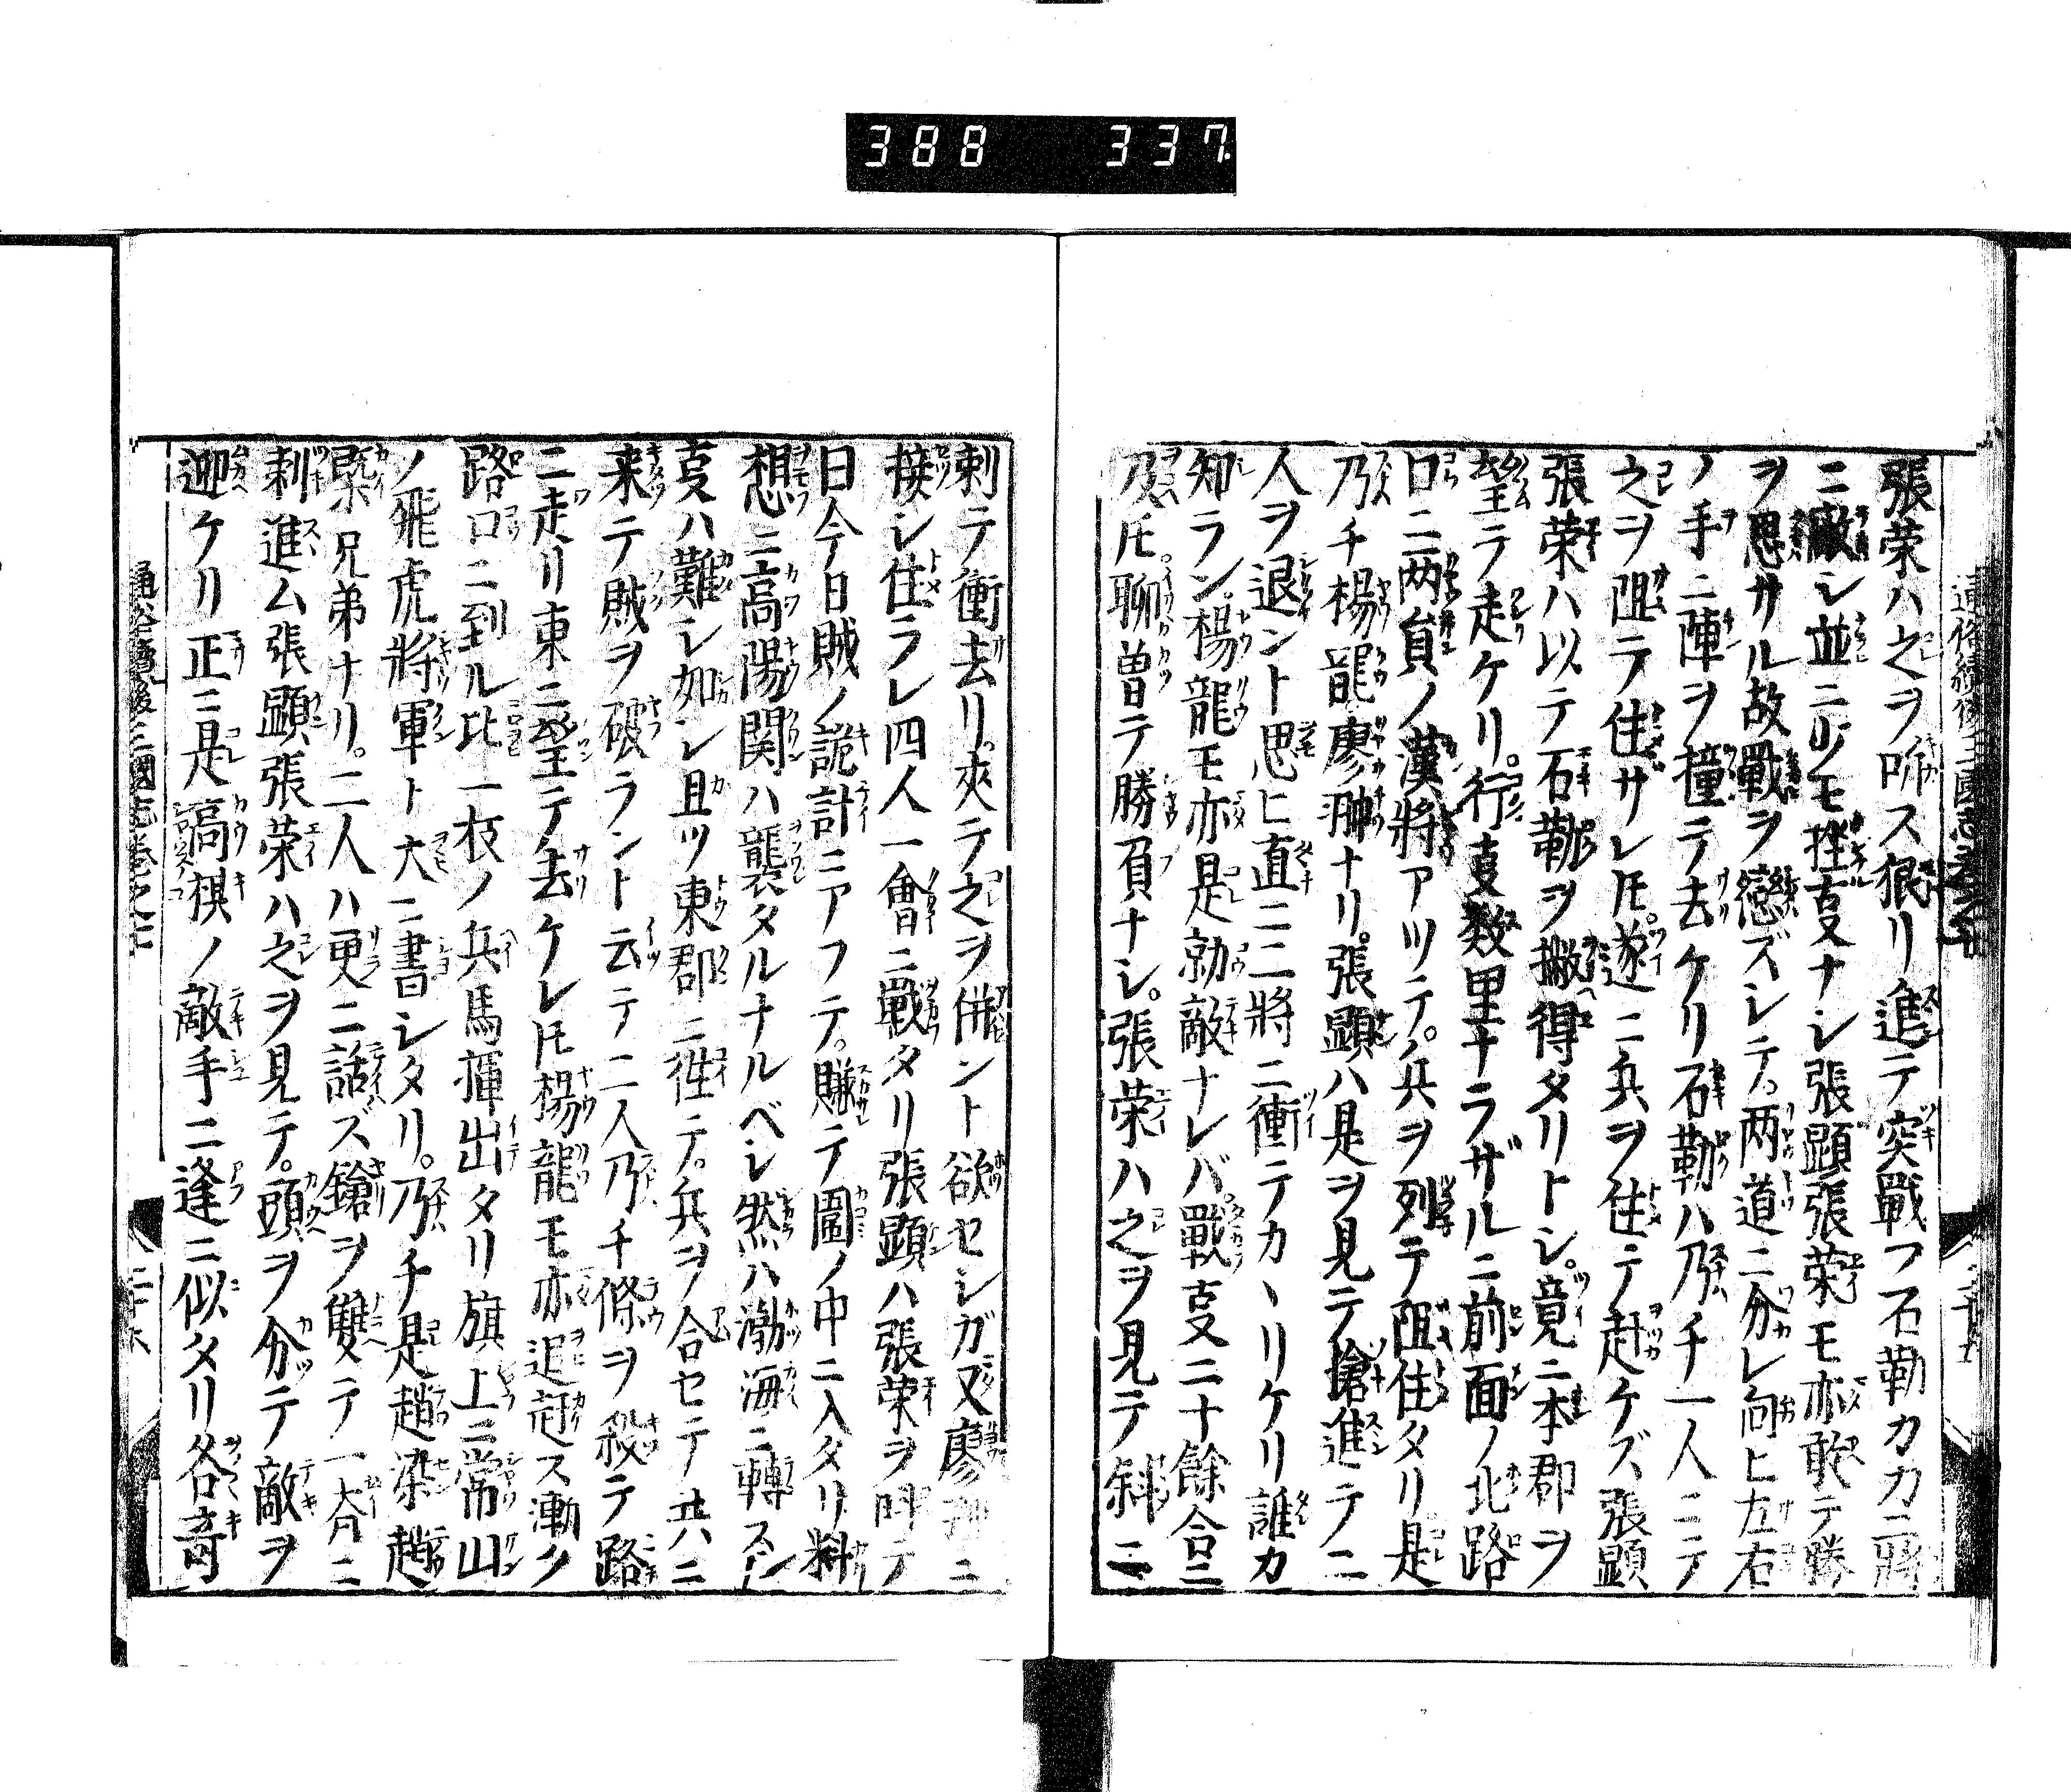 388 337
張荣ハ之ヲ吩ス狠リ進テ突戰フ石勒カ力二將
ニ敵シ並ニ少モ挫支ナシ張顕張荣モ亦敢テ勝
ヲ思サル故戰ヲ戀ズシテ。两道ニ分レ向ヒ左右
ノ手ニ陣ヲ撞テ去ケリ石勒ハ乃チ一人ニテ
之ヲ阻テ住ザレ𪜈。遂ニ兵ヲ住テ赶ケズ張顕
張荣ハ以テ石勒ヲ撇得タリトシ。竟ニ本郡ヲ
望テ走ケリ。行支数里ナラザルニ前面ノ北路
口ニ两貟ノ漢將アツテ。兵ヲ列テ阻住タリ是
乃チ楊龍廖翀ナリ。張顕ハ是ヲ見テ搶進テ二
人ヲ退ント思ヒ直ニ二將ニ衝テカヽリケリ誰カ
知ラン。楊龍モ亦是勍敵ナレバ。戰支二十餘合ニ
及𪜈。聊曽テ勝負ナシ。張荣ハ之ヲ見テ斜ニ
刺テ衝去リ。夾テ之ヲ併ント欲セシガ又廖翀ニ
接シ住ラレ四人一會ニ戰タリ張顕ハ張荣ヲ呌テ
日今日賊ノ詭計ニアフテ。賺テ圖ノ中ニ入タリ料
想ニ高陽関ハ襲タルナルベシ然ハ渤海ニ轉スル
支ハ難シ如シ且ツ東郡ニ徃テ。兵ヲ合セテ共ニ
来テ賊ヲ破ラント云テ二人乃チ條ヲ殺テ路
ニ走リ東ニ望テ去ケレ𪜈楊龍モ亦追赶ス漸ク
路口ニ到ル比一枝ノ兵馬揮出タリ旗上ニ常山
ノ飛虎將軍ト大ニ書シタリ。乃チ是趙染趙
槩兄弟ナリ。二人ハ更ニ話ズ鎗ヲ雙テ一斉ニ
刺進ム張顕張荣ハ之ヲ見テ。頭ヲ分テ敵ヲ
迎ケリ正ニ是高棋ノ敵手ニ逢ニ似タリ各竒
通俗續後三國志巻之七 二十六